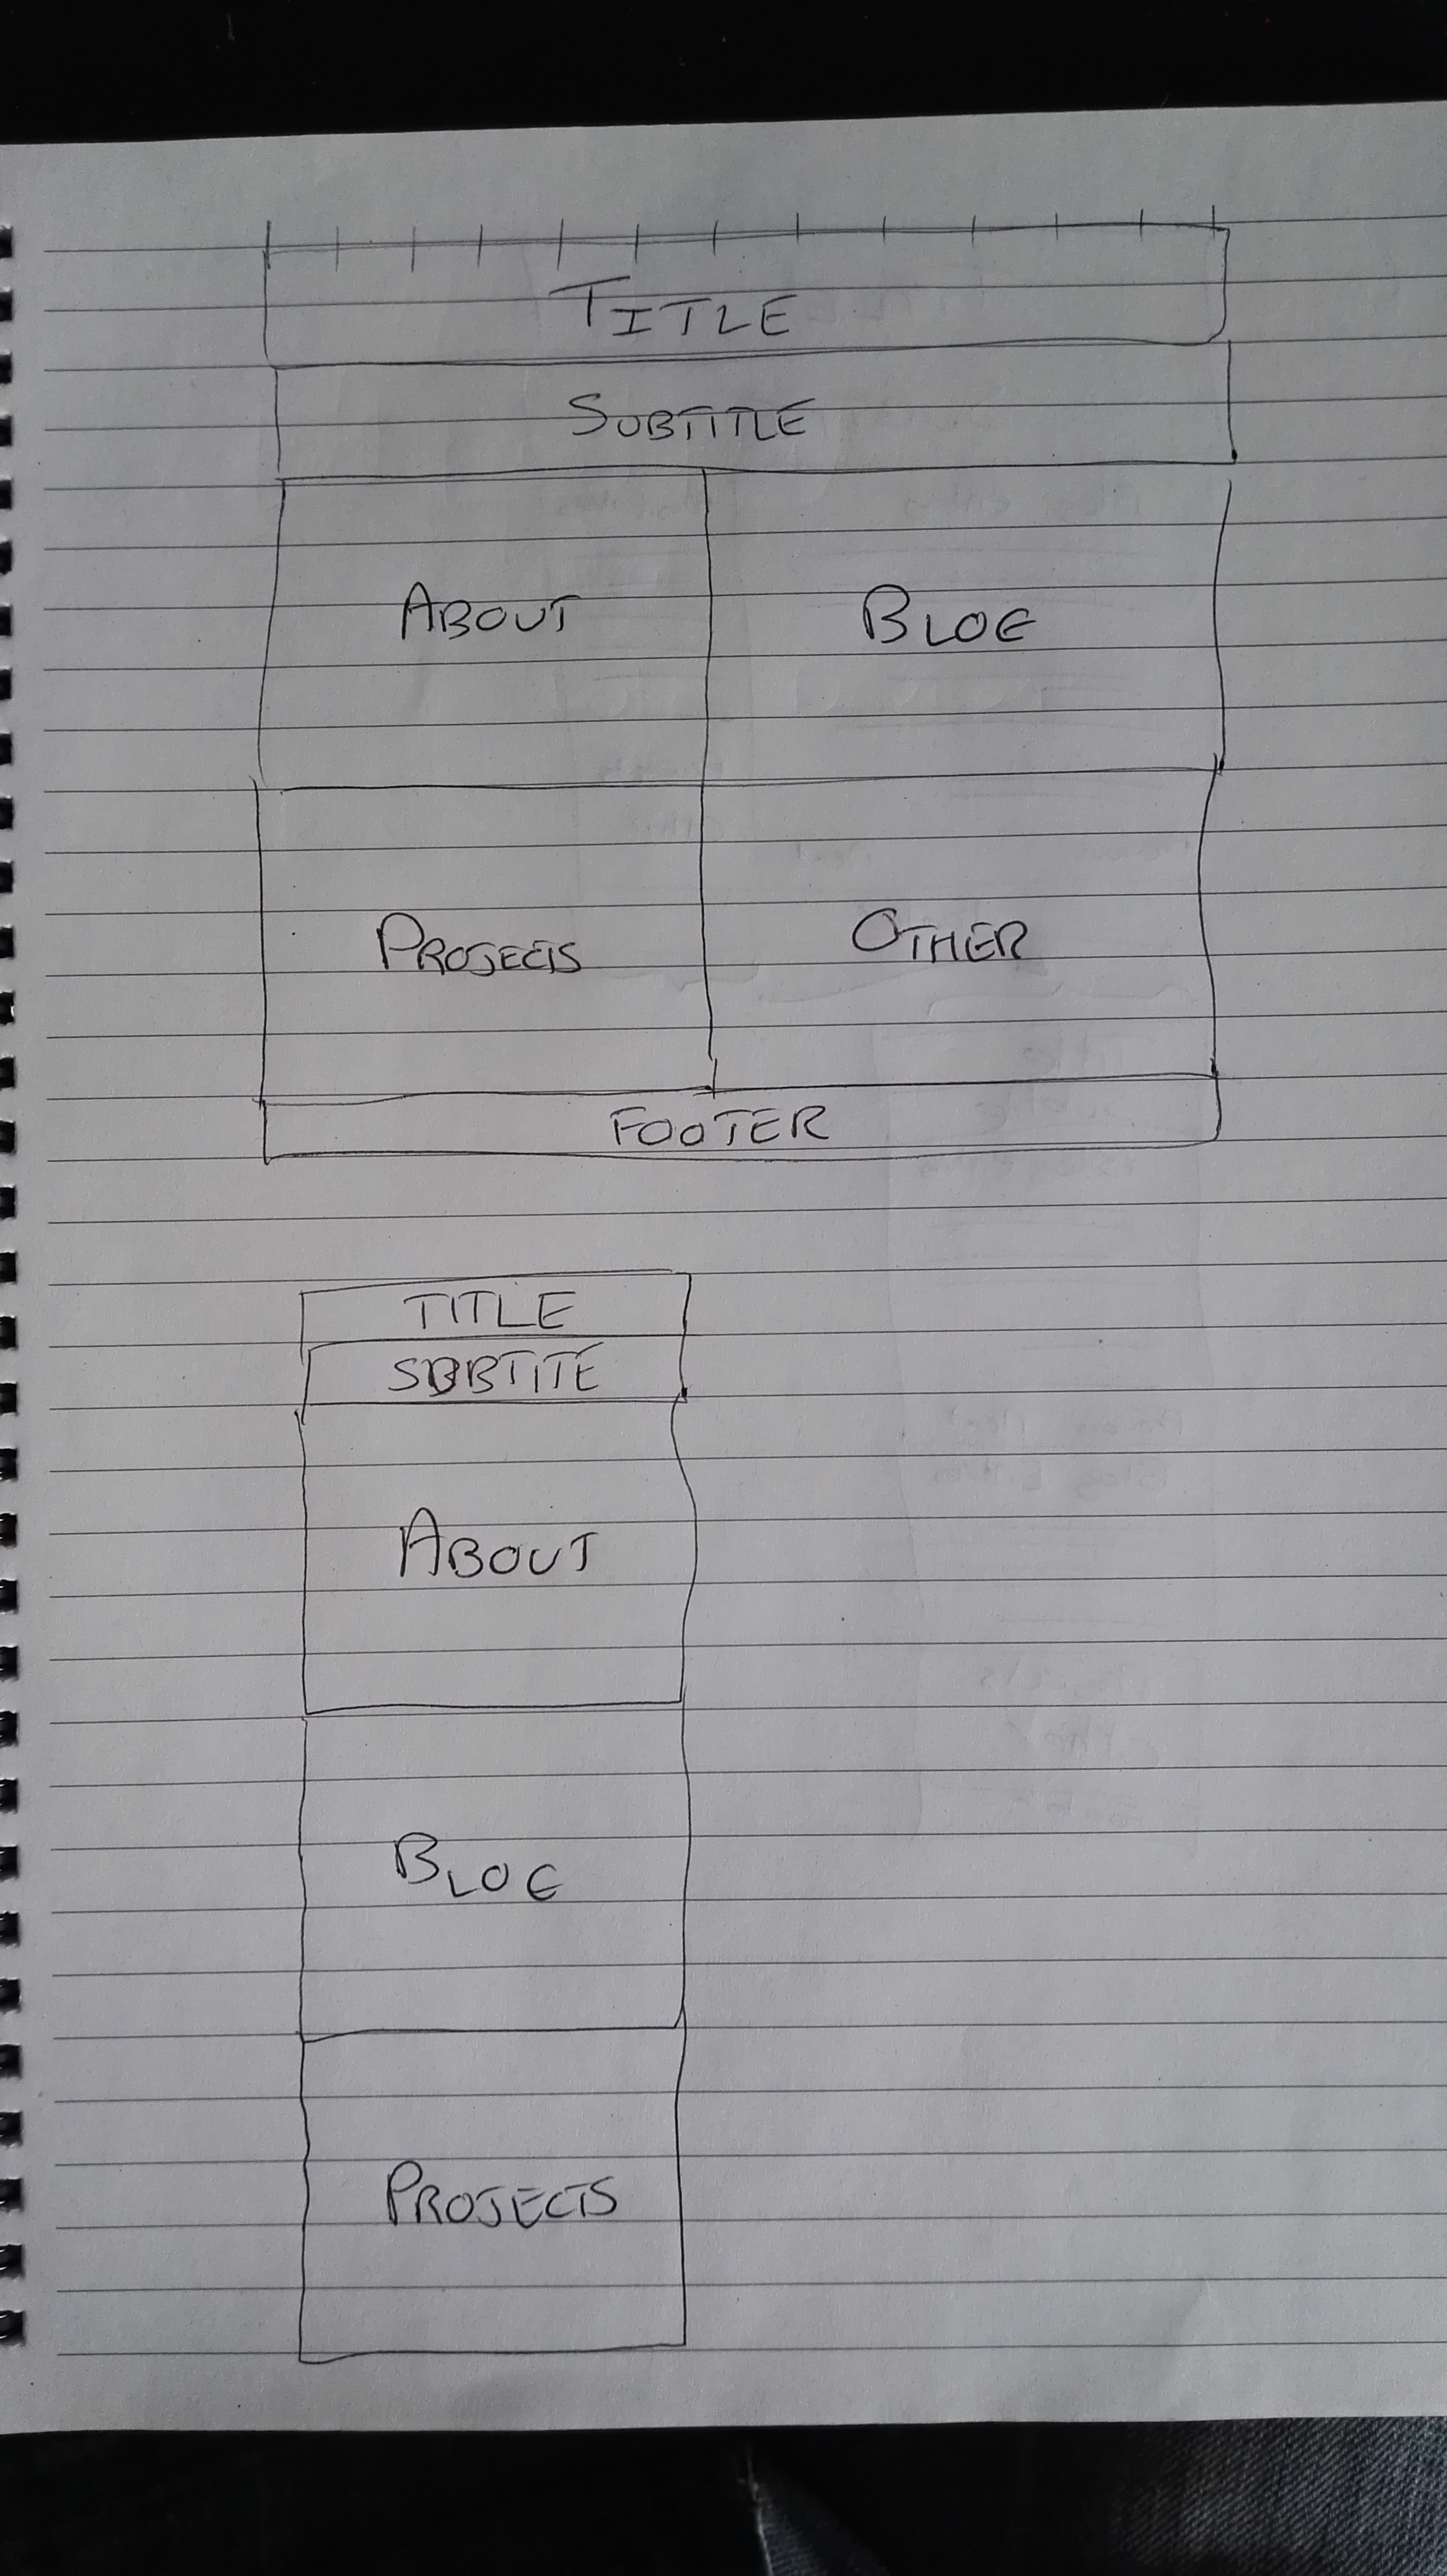 TITLE
SUBTITLE
ABOUT BLOG
PROJECTS OTHER
FOOTER
TITLE
SUBTITE
ABOUT
BLOG
PROJECTS